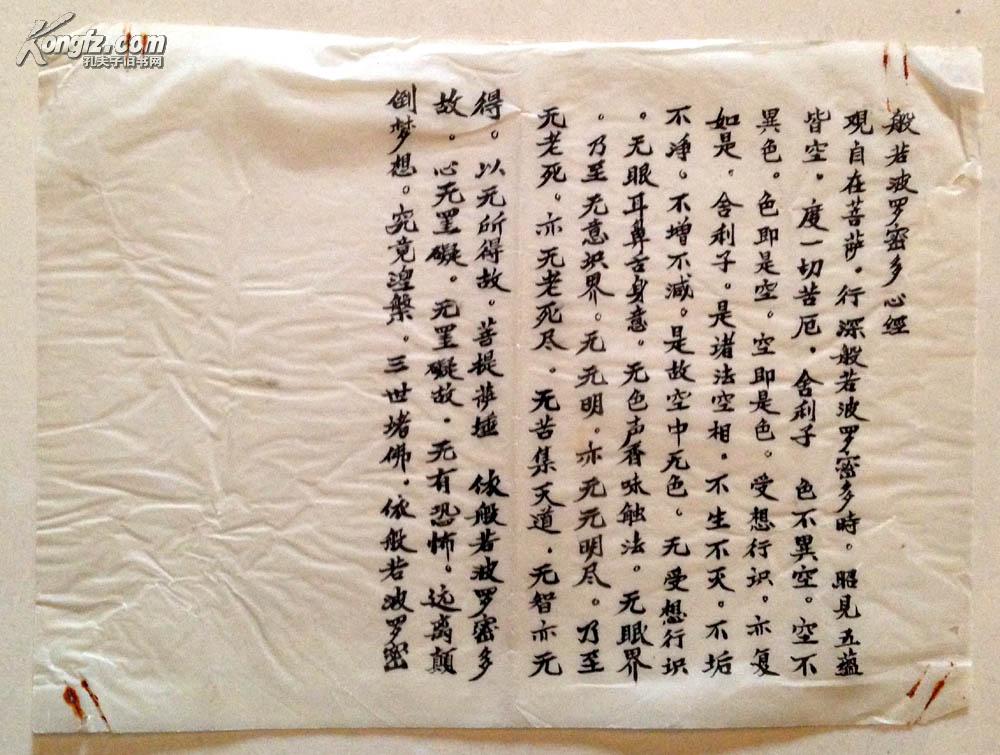 Kongfz.com
孔夫子旧书网
般若波罗密多心經
观自在菩萨。行深般若波罗密多時。照見五蕴
皆空。度一切苦厄。舍利子 色不異空。空不
異色。色即是空。空即是色。受想行识。亦复
如是。舍利子。是诸法空相。不生不灭。不垢
不净。不增不减。是故空中无色。无受想行识
。无眼耳鼻舌身意。无色声香味触法。无眼界
。乃至无意识界。无无明。亦无无明尽。乃至
无老死。亦无老死尽。无苦集灭道。无智亦无
得。以无所得故。菩提萨埵 依般若波罗密多
故。心无罣礙。无罣礙故。无有恐怖。远离颠
倒梦想。究竟涅槃。三世诸佛。依般若波罗密